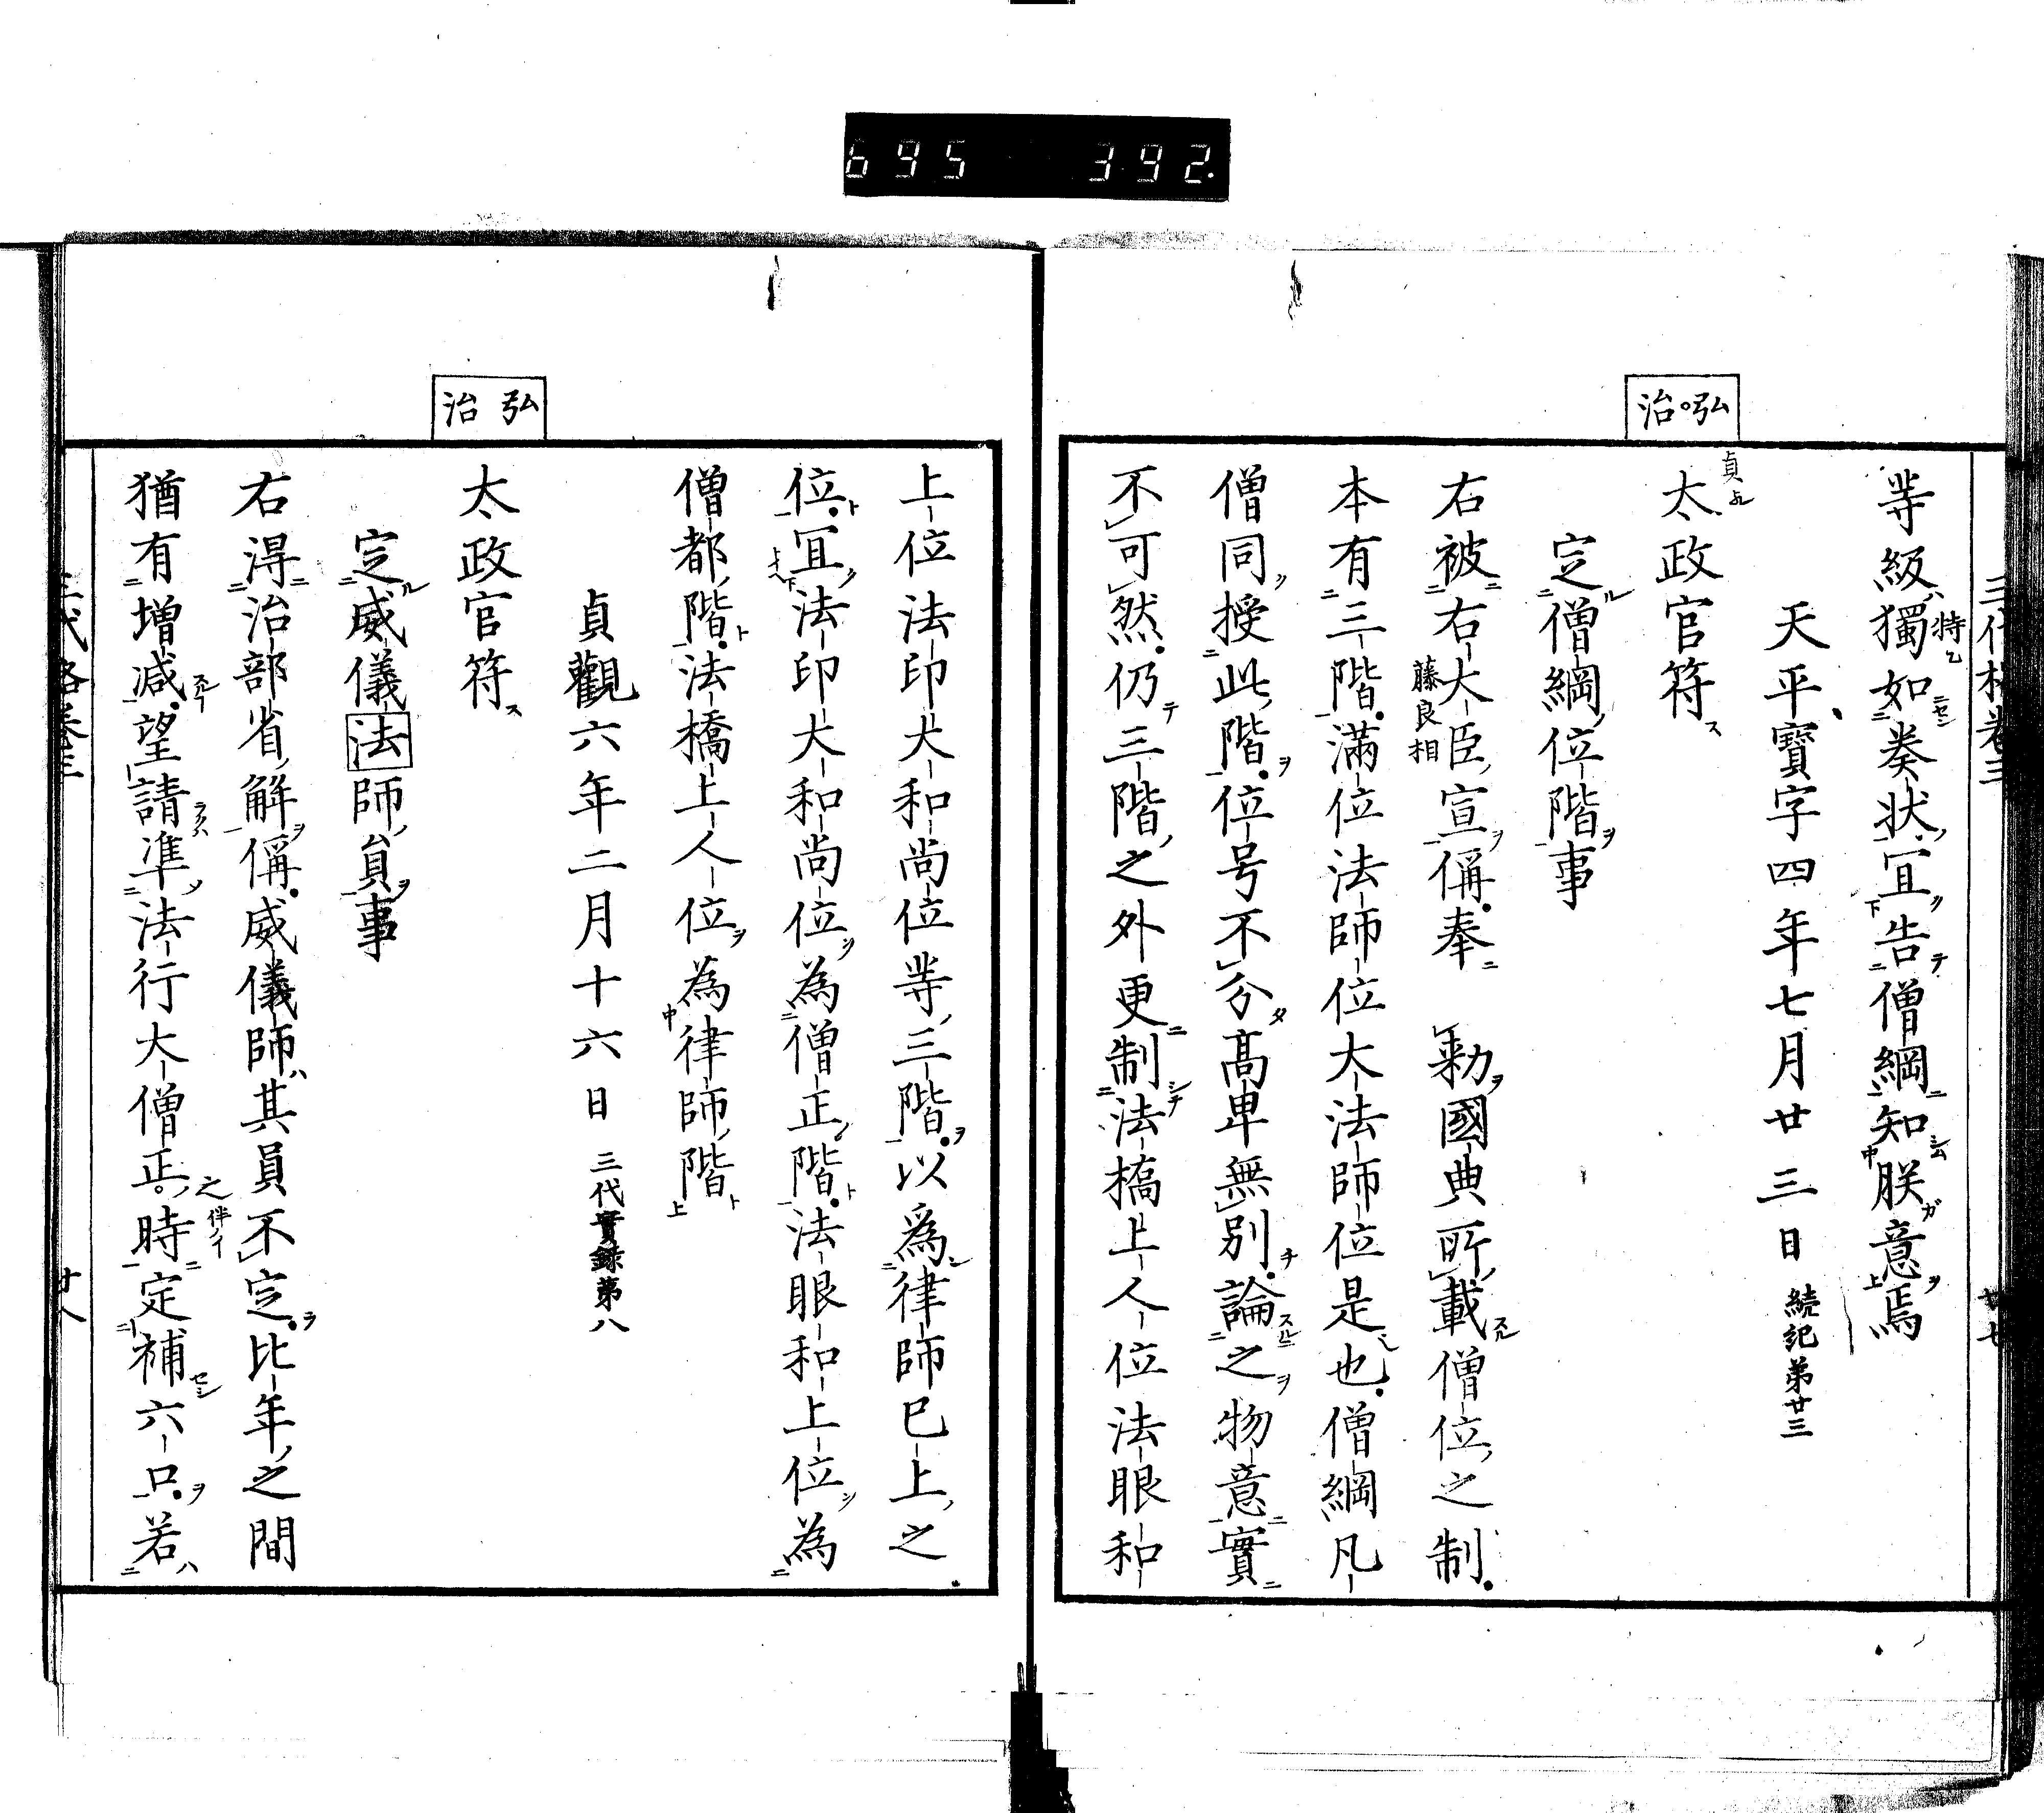 695 392.
弘治
等級獨如奏状宜告僧綱知朕意焉
天平寶字四年七月廿三日 続紀第廿三
太政官符
定僧綱位階事
右被右大臣宣偁奉 勅國典所載僧位之制
藤良相
本有三階滿位法師位大法師位是也僧綱凡
僧同授此階位号不分高卑無別論之物意實
不可然仍三階之外更制法橋上人位法眼和
弘治
上位法印大和尚位等三階以為律師已上之
位宜法印大和尚位為僧正階法眼和上位為
僧都階法橋上人位為律師階
貞觀六年二月十六日 三代實録第八
太政官符
定威儀法師員事
右得治部省解偁威儀師其員不定比年之間
猶有增減望請準法行大僧正時定補六口若